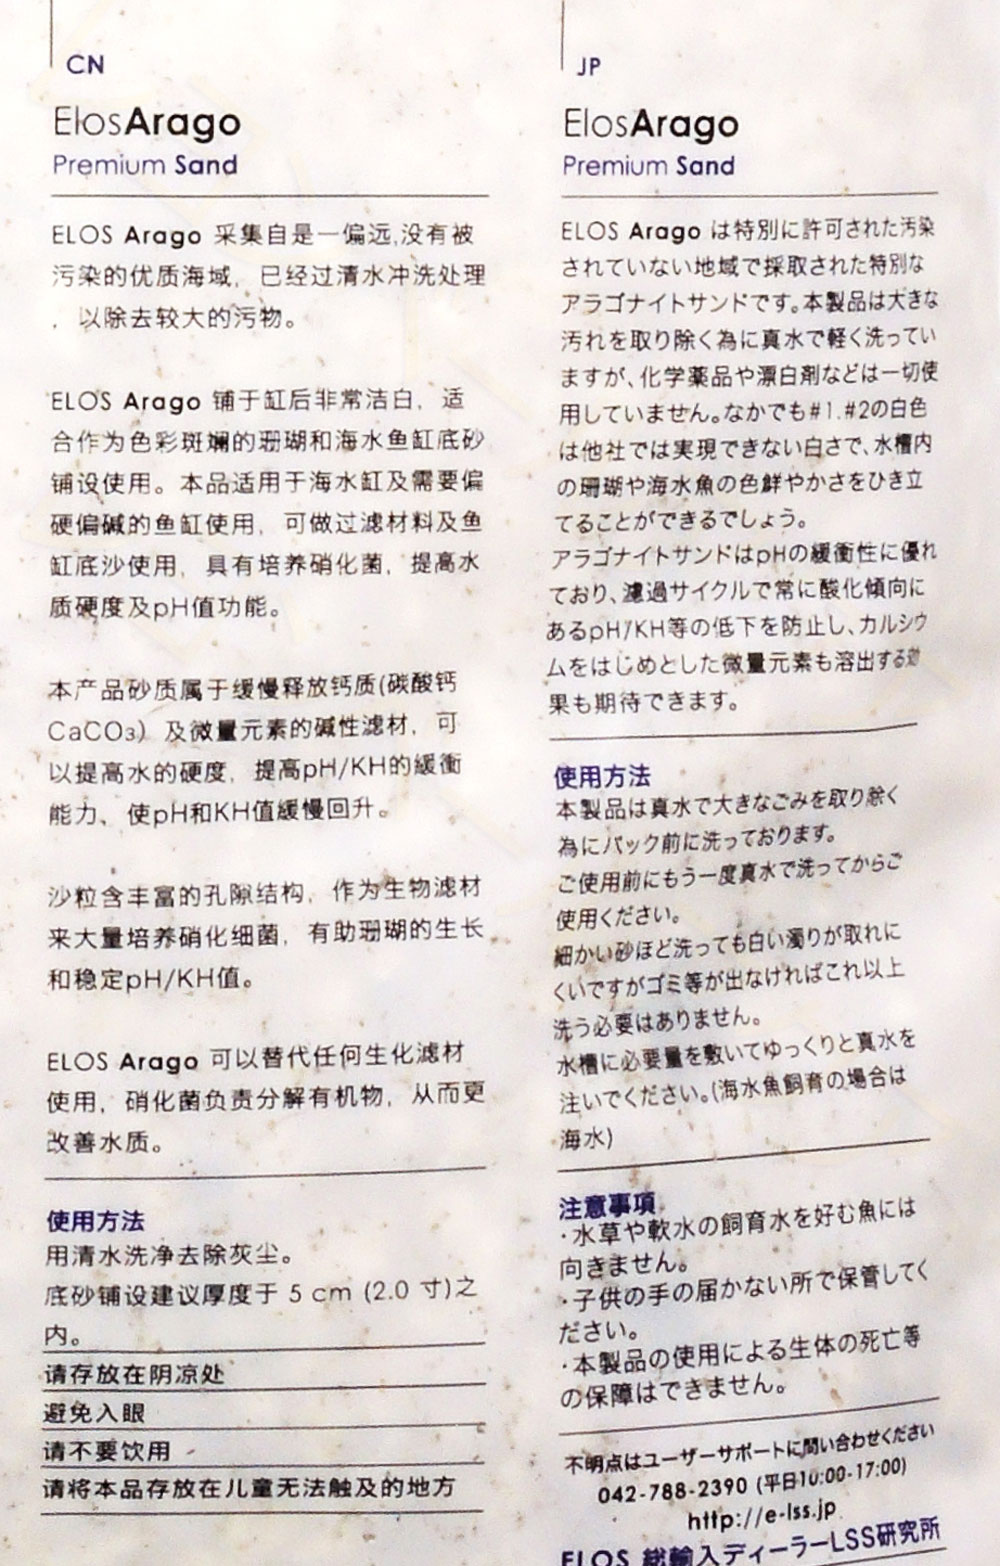 CN
ElosArago
Premium Sand
ELOS Arago 采集自是一偏远,没有被
污染的优质海域，已经过清水冲洗处理
，以除去较大的污物。
ELOS Arago 铺于缸后非常洁白，适
合作为色彩斑斓的珊瑚和海水鱼缸底砂
铺设使用。本品适用于海水缸及需要偏
硬偏碱的鱼缸使用，可做过滤材料及鱼
缸底沙使用，具有培养硝化菌，提高水
质硬度及pH值功能。
本产品砂质属于缓慢释放钙质(碳酸钙
CaCO₃）及微量元素的碱性滤材，可
以提高水的硬度，提高pH/KH的緩衝
能力、使pH和KH值緩慢回升。
沙粒含丰富的孔隙结构，作为生物滤材
来大量培养硝化细菌，有助珊瑚的生长
和稳定pH/KH值。
ELOS Arago 可以替代任何生化滤材
使用，硝化菌负责分解有机物，从而更
改善水质。
使用方法
用清水洗净去除灰尘。
底砂铺设建议厚度于 5 cm (2.0 寸)之
内。
请存放在阴凉处
避免入眼
请不要饮用
请将本品存放在儿童无法触及的地方
JP
ElosArago
Premium Sand
ELOS Arago は特別に許可された汚染
されていない地域で採取された特別な
アラゴナイトサンドです。本製品は大きな
汚れを取り除く為に真水で軽く洗ってい
ますが、化学薬品や漂白剤などは一切使
用していません。なかでも#1.#2の白色
は他社では実現できない白さで、水槽内
の珊瑚や海水魚の色鮮やかさをひき立
てることができるでしょう。
アラゴナイトサンドはpHの緩衝性に優れ
ており、濾過サイクルで常に酸化傾向に
あるpH/KH等の低下を防止し、カルシウ
ムをはじめとした微量元素も溶出する効
果も期待できます。
使用方法
本製品は真水で大きなごみを取り除く
為にパック前に洗っております。
ご使用前にもう一度真水で洗ってからご
使用ください。
細かい砂ほど洗っても白い濁りが取れに
くいですがゴミ等が出なければこれ以上
洗う必要はありません。
水槽に必要量を敷いてゆっくりと真水を
注いでください。(海水魚飼育の場合は
海水)
注意事項
・水草や軟水の飼育水を好む魚には
向きません。
・子供の手の届かない所で保管してく
ださい。
・本製品の使用による生体の死亡等
の保障はできません。
不明点はユーザーサポートに問い合わせください
042-788-2390 (平日10:00-17:00)
http://e-lss.jp
ELOS 総輸入ディーラーLSS研究所